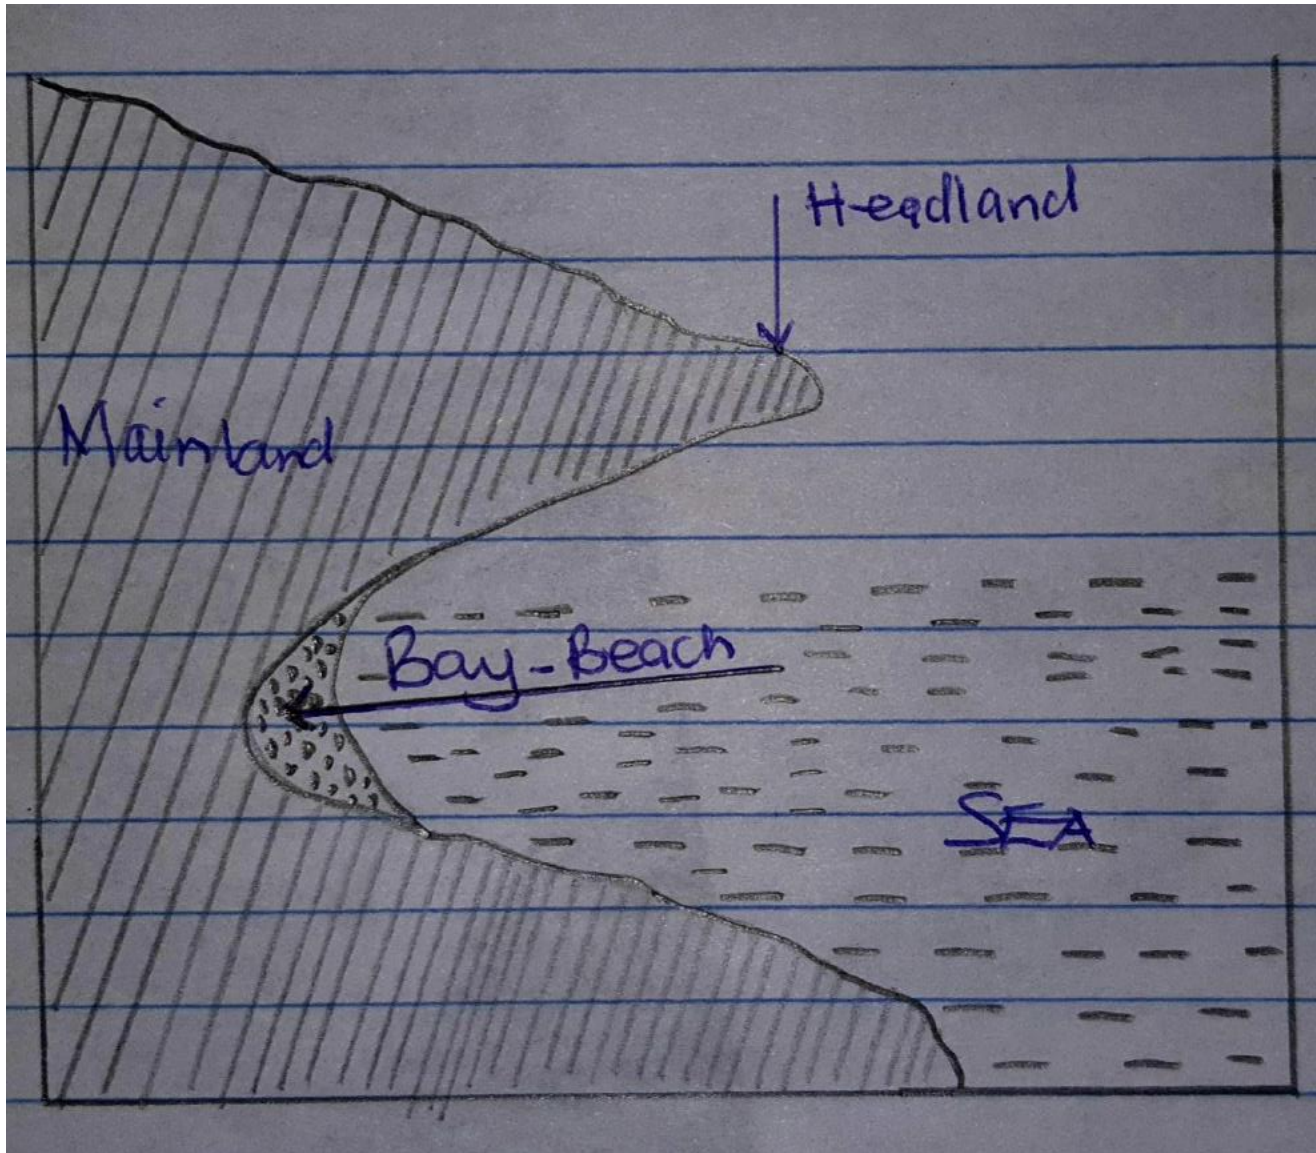 Headland
Mainland
Bay-Beach
SEA